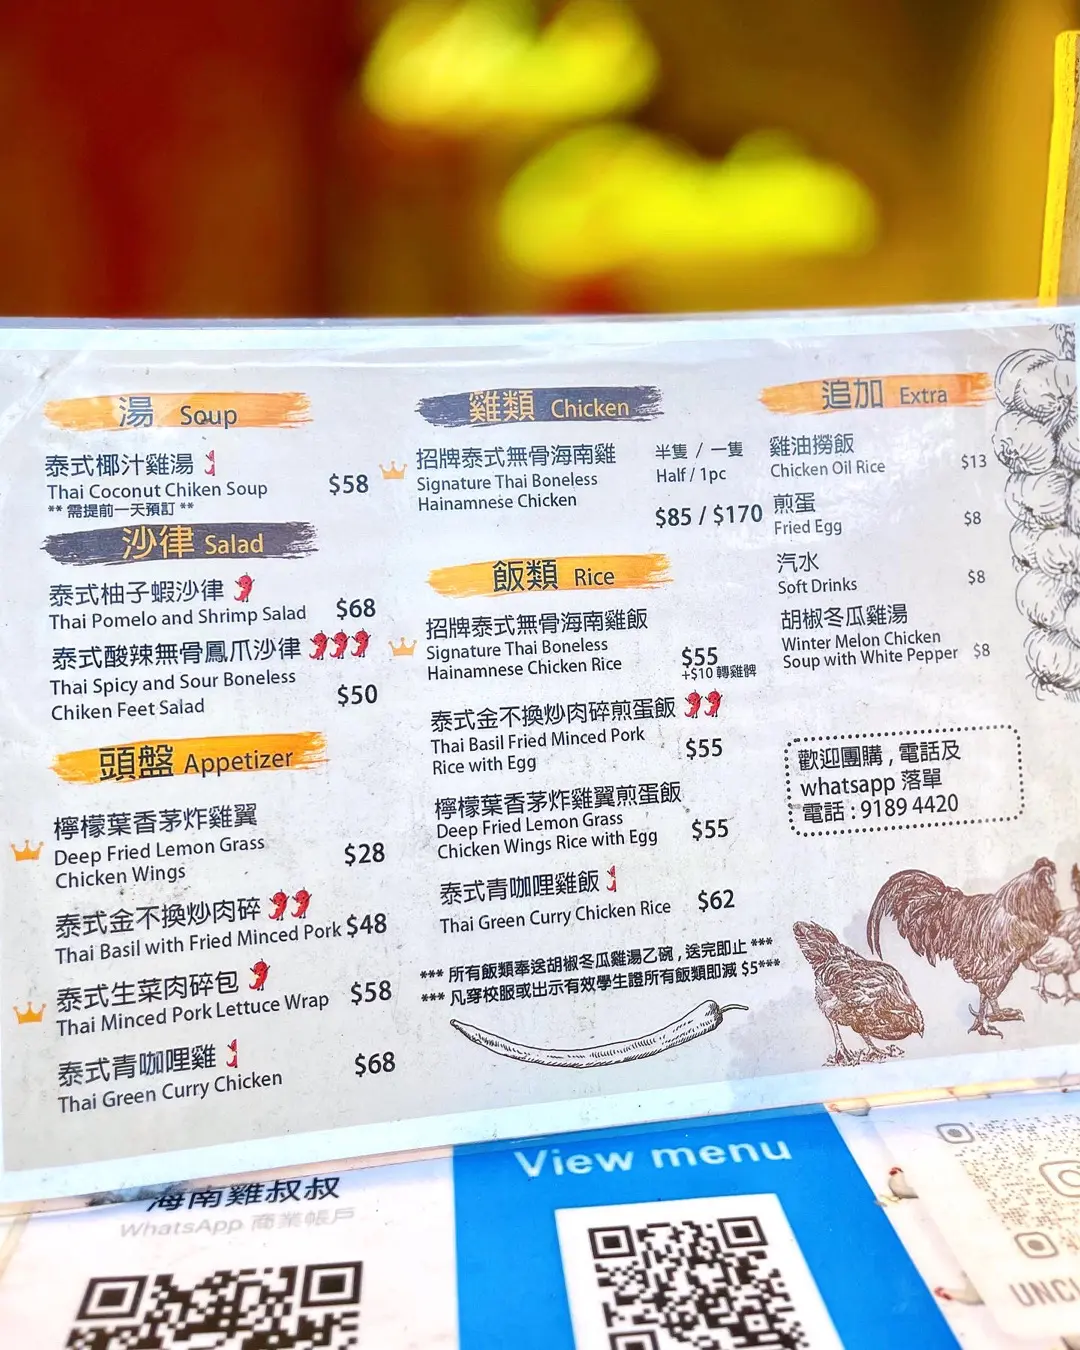 湯 Soup
泰式椰汁雞湯
Thai Coconut Chiken Soup
$58
** 需提前一天預訂 **
沙律 Salad
泰式柚子蝦沙律
Thai Pomelo and Shrimp Salad
$68
泰式酸辣無骨鳳爪沙律
Thai Spicy and Sour Boneless
Chiken Feet Salad
$50
頭盤 Appetizer
檸檬葉香茅炸雞翼
Deep Fried Lemon Grass
Chicken Wings
$28
泰式金不換炒肉碎
Thai Basil with Fried Minced Pork $48
泰式生菜肉碎包
Thai Minced Pork Lettuce Wrap
$58
泰式青咖哩雞
Thai Green Curry Chicken
$68
雞類 Chicken
招牌泰式無骨海南雞
Signature Thai Boneless
Hainamnese Chicken
半隻 / 一隻
Half / 1pc
$85 / $170
飯類 Rice
招牌泰式無骨海南雞飯
Signature Thai Boneless
Hainamnese Chicken Rice
$55
+$10 轉雞髀
泰式金不換炒肉碎煎蛋飯
Thai Basil Fried Minced Pork
Rice with Egg
$55
檸檬葉香茅炸雞翼煎蛋飯
Deep Fried Lemon Grass
Chicken Wings Rice with Egg
$55
泰式青咖哩雞飯
Thai Green Curry Chicken Rice
$62
*** 所有飯類奉送胡椒冬瓜雞湯乙碗 , 送完即止 ***
*** 凡穿校服或出示有效學生證所有飯類即減 $5***
追加 Extra
雞油撈飯
Chicken Oil Rice
$13
煎蛋
Fried Egg
$8
汽水
Soft Drinks
$8
胡椒冬瓜雞湯
Winter Melon Chicken
Soup with White Pepper
$8
歡迎團購 , 電話及
whatsapp 落單
電話 : 9189 4420
海南雞叔叔
WhatsApp 商業帳戶
View menu